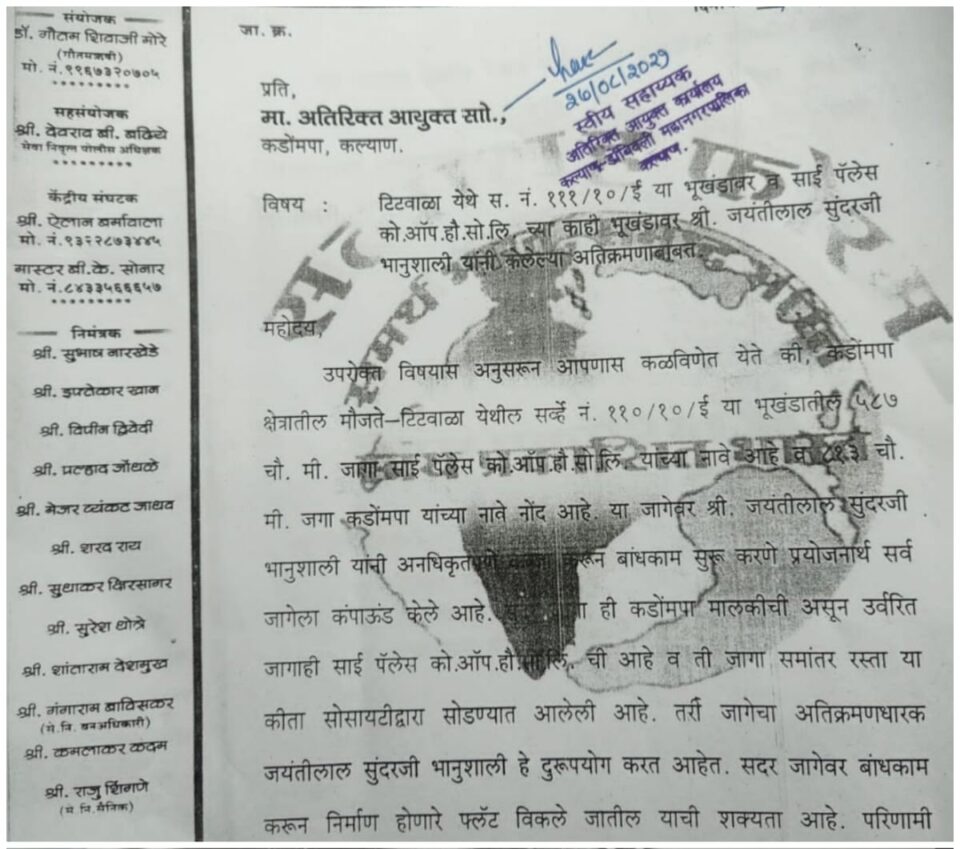 संयोजक
डॉ. गौतम शिवाजी मोरे
(गौतमऋषी)
मो. नं.९९६७३२०७०५
सहसंयोजक
श्री. देवराव बी. बढिये
सेवा निवृत्त पोलीस अधिक्षक
केंद्रीय संघटक
श्री. ऐलान बर्मावाला
मो. नं.९३२२८७३४४५
मास्टर बी.के. सोनार
मो. नं.८४३३५६६६५७
निमंत्रक
श्री. सुभाष नारखेडे
श्री. इफ्तेकार खान
श्री. विपीन द्विवेदी
श्री. प्रल्हाद जोंधळे
श्री. मेजर व्यंकट जाधव
श्री. शरद राय
श्री. सुधाकर क्षिरसागर
श्री. सुरेश धोत्रे
श्री. शांताराम देशमुख
श्री. गंगाराम बाविसकर
(से. नि. वनअधिकारी)
श्री. कमलाकर कदम
श्री. राजु शिंगणे
(से. नि. सैनिक)
जा. क्र.
प्रति,
मा. अतिरिक्त आयुक्त सो.,
कडोंमपा, कल्याण.
स्वीय सहाय्यक
अतिरिक्त आयुक्त कार्यालय
कल्याण-डोंबिवली महानगरपालिका
कल्याण.
विषय : टिटवाळा येथे स. नं. १११/१०/ई या भूखंडावर व साई पॅलेस
को.ऑप.हौ.सो.लि. च्या काही भूखंडावर श्री. जयंतीलाल सुंदरजी
भानुशाली यांनी केलेल्या अतिक्रमणाबाबत.
महोदय,
उपरोक्त विषयास अनुसरून आपणास कळविणेत येते की, कडोंमपा
क्षेत्रातील मौजते-टिटवाळा येथील सर्व्हे नं. ११०/१०/ई या भूखंडातील ५८७
चौ. मी. जागा साई पॅलेस को.ऑप.हौ.सो.लि. यांच्या नावे आहे व ८१३ चौ.
मी. जगा कडोंमपा यांच्या नावे नोंद आहे. या जागेवर श्री. जयंतीलाल सुंदरजी
भानुशाली यांनी अनधिकृतपणे करून बांधकाम सुरू करणे प्रयोजनार्थ सर्व
जागेला कंपाऊंड केले आहे. ही कडोंमपा मालकीची असून उर्वरित
जागाही साई पॅलेस को.ऑप.हौ.सो.लि. ची आहे व ती जागा समांतर रस्ता या
कीता सोसायटीद्वारा सोडण्यात आलेली आहे. तरी जागेचा अतिक्रमणधारक
जयंतीलाल सुंदरजी भानुशाली हे दुरूपयोग करत आहेत. सदर जागेवर बांधकाम
करून निर्माण होणारे फ्लॅट विकले जातील याची शक्यता आहे. परिणामी